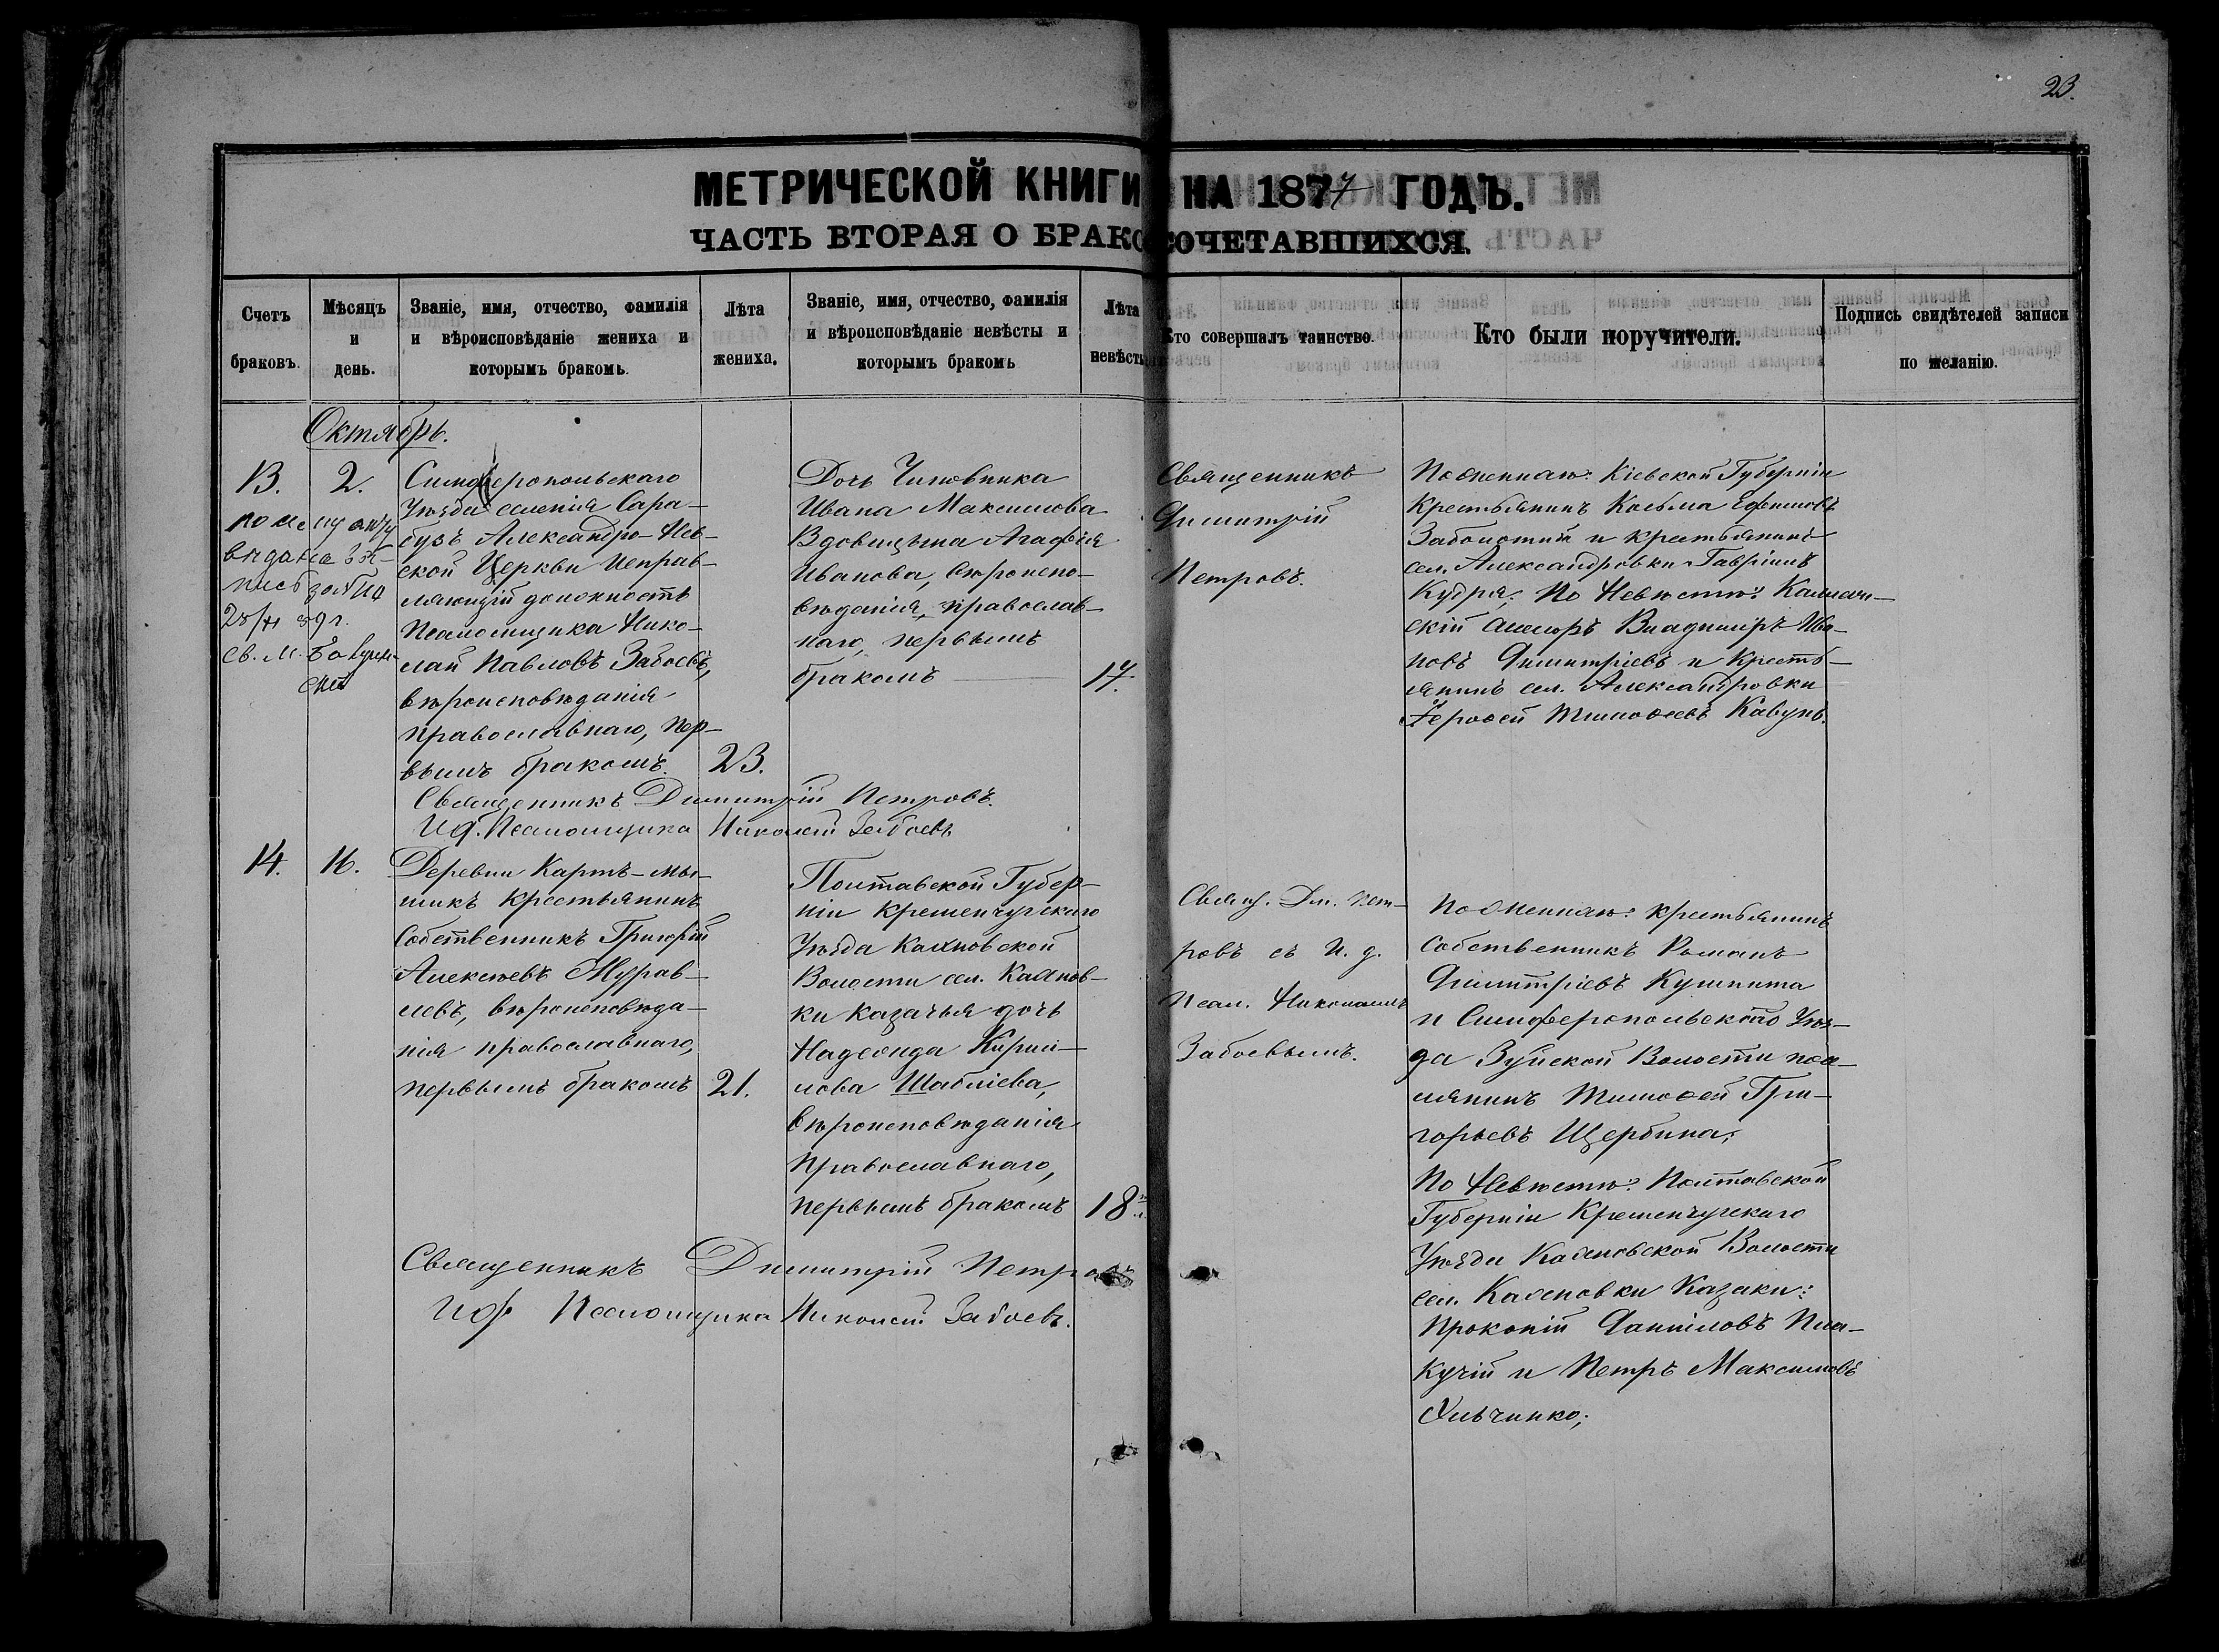 23.
МЕТРИЧЕСКОЙ КНИГИ НА 1877 ГОДЪ.
ЧАСТЬ ВТОРАЯ О БРАКОСОЧЕТАВШИХСЯ.
Счетъ браковъ.
Мѣсяцъ и день.
Званіе, имя, отчество, фамилія и вѣроисповѣданіе жениха и которымъ бракомъ.
Лѣта жениха.
Званіе, имя, отчество, фамилія и вѣроисповѣданіе невѣсты и которымъ бракомъ
Лѣта невѣсты
Кто совершалъ таинство.
Кто были поручители.
Подпись свидѣтелей записи по желанію.
Октябрь.
13.
2.
Симферопольскаго
Уѣзда селенія Сара-
бузъ Александро-Нев-
ской Церкви Исправ-
ляющій должность
Псаломщика Нико-
лай Павловъ Забоевъ,
вѣроисповѣданія
православнаго, пер-
вымъ бракомъ.
23.
Дочь Чиновника
Ивана Максимова
Вдовицына Агафія
Иванова, вѣроиспо-
вѣданія, православ-
наго, первымъ
бракомъ
17.
Священникъ
Димитрій
Петровъ.
По Жениху: Кіевской Губерніи
Крестьянинъ Косьма Ефимовъ
Заболотній и крестьянинъ
сел. Александровки Гавріилъ
Кудря; По Невѣстѣ:
Владиміръ Ива-
новъ Димитріевъ и Кресть-
янинъ сел. Александровки
Іероѳей Тимоѳеевъ Кавунъ.
Священникъ Димитрій Петровъ.
И д. Псаломщика Николай Забоевъ
14.
16.
Деревни Картъ-мы-
шикъ Крестьянинъ
Собственникъ Григорій
Алексѣевъ Журав-
левъ, вѣроисповѣда-
нія православнаго,
первымъ бракомъ
21.
Полтавской Губер-
ніи Кременчугскаго
Уѣзда
Волости сел.
ки казачья дочь
Надежда Кирил-
лова Шаблiева,
вѣроисповѣданія
Православнаго,
первымъ бракомъ
18
Свящ. Дм. Пет-
ровъ съ И. д.
Псал. Николаемъ
Забоевымъ.
По Жениху: крестьянинъ
Собственникъ Романъ
Димитріевъ
и Симферопольскаго Уѣз-
да Зуйской Волости посе-
лянинъ Тимоѳей Гри-
горьевъ Щербина;
По Невѣстѣ: Полтавской
Губерніи Кременчугскаго
Уѣзда Волости
сел. Казаки:
Прокопій Даниловъ Пла-
кучій и Петръ Максимовъ
Священникъ Димитрій Петровъ
Ид Псаломщика Николай Забоевъ.